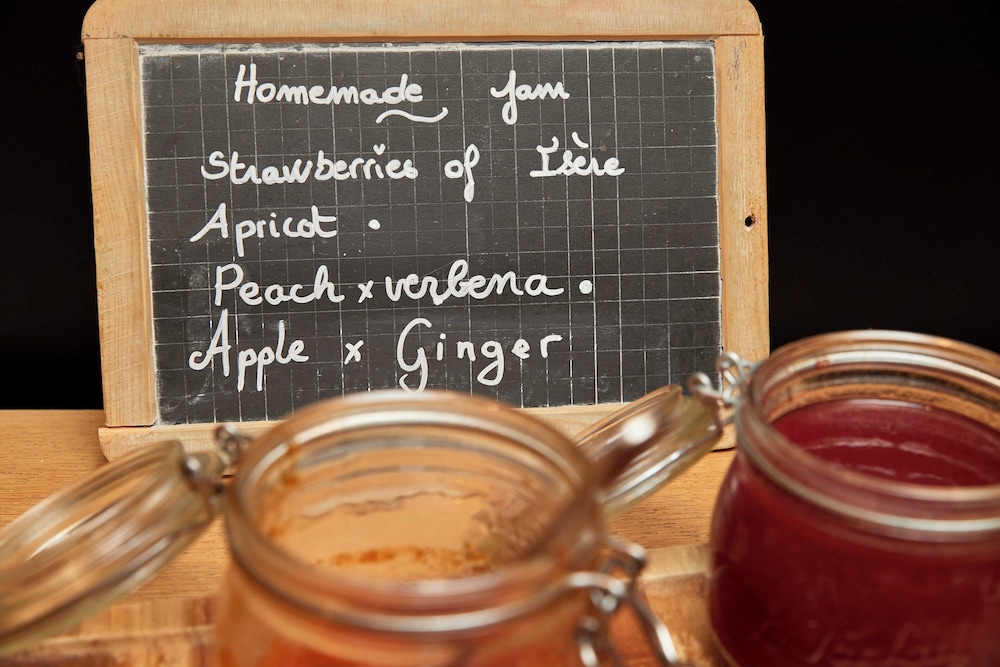 Homemade Jam
Strawberries of Isère
Apricot .
Peach x verbena .
Apple x Ginger